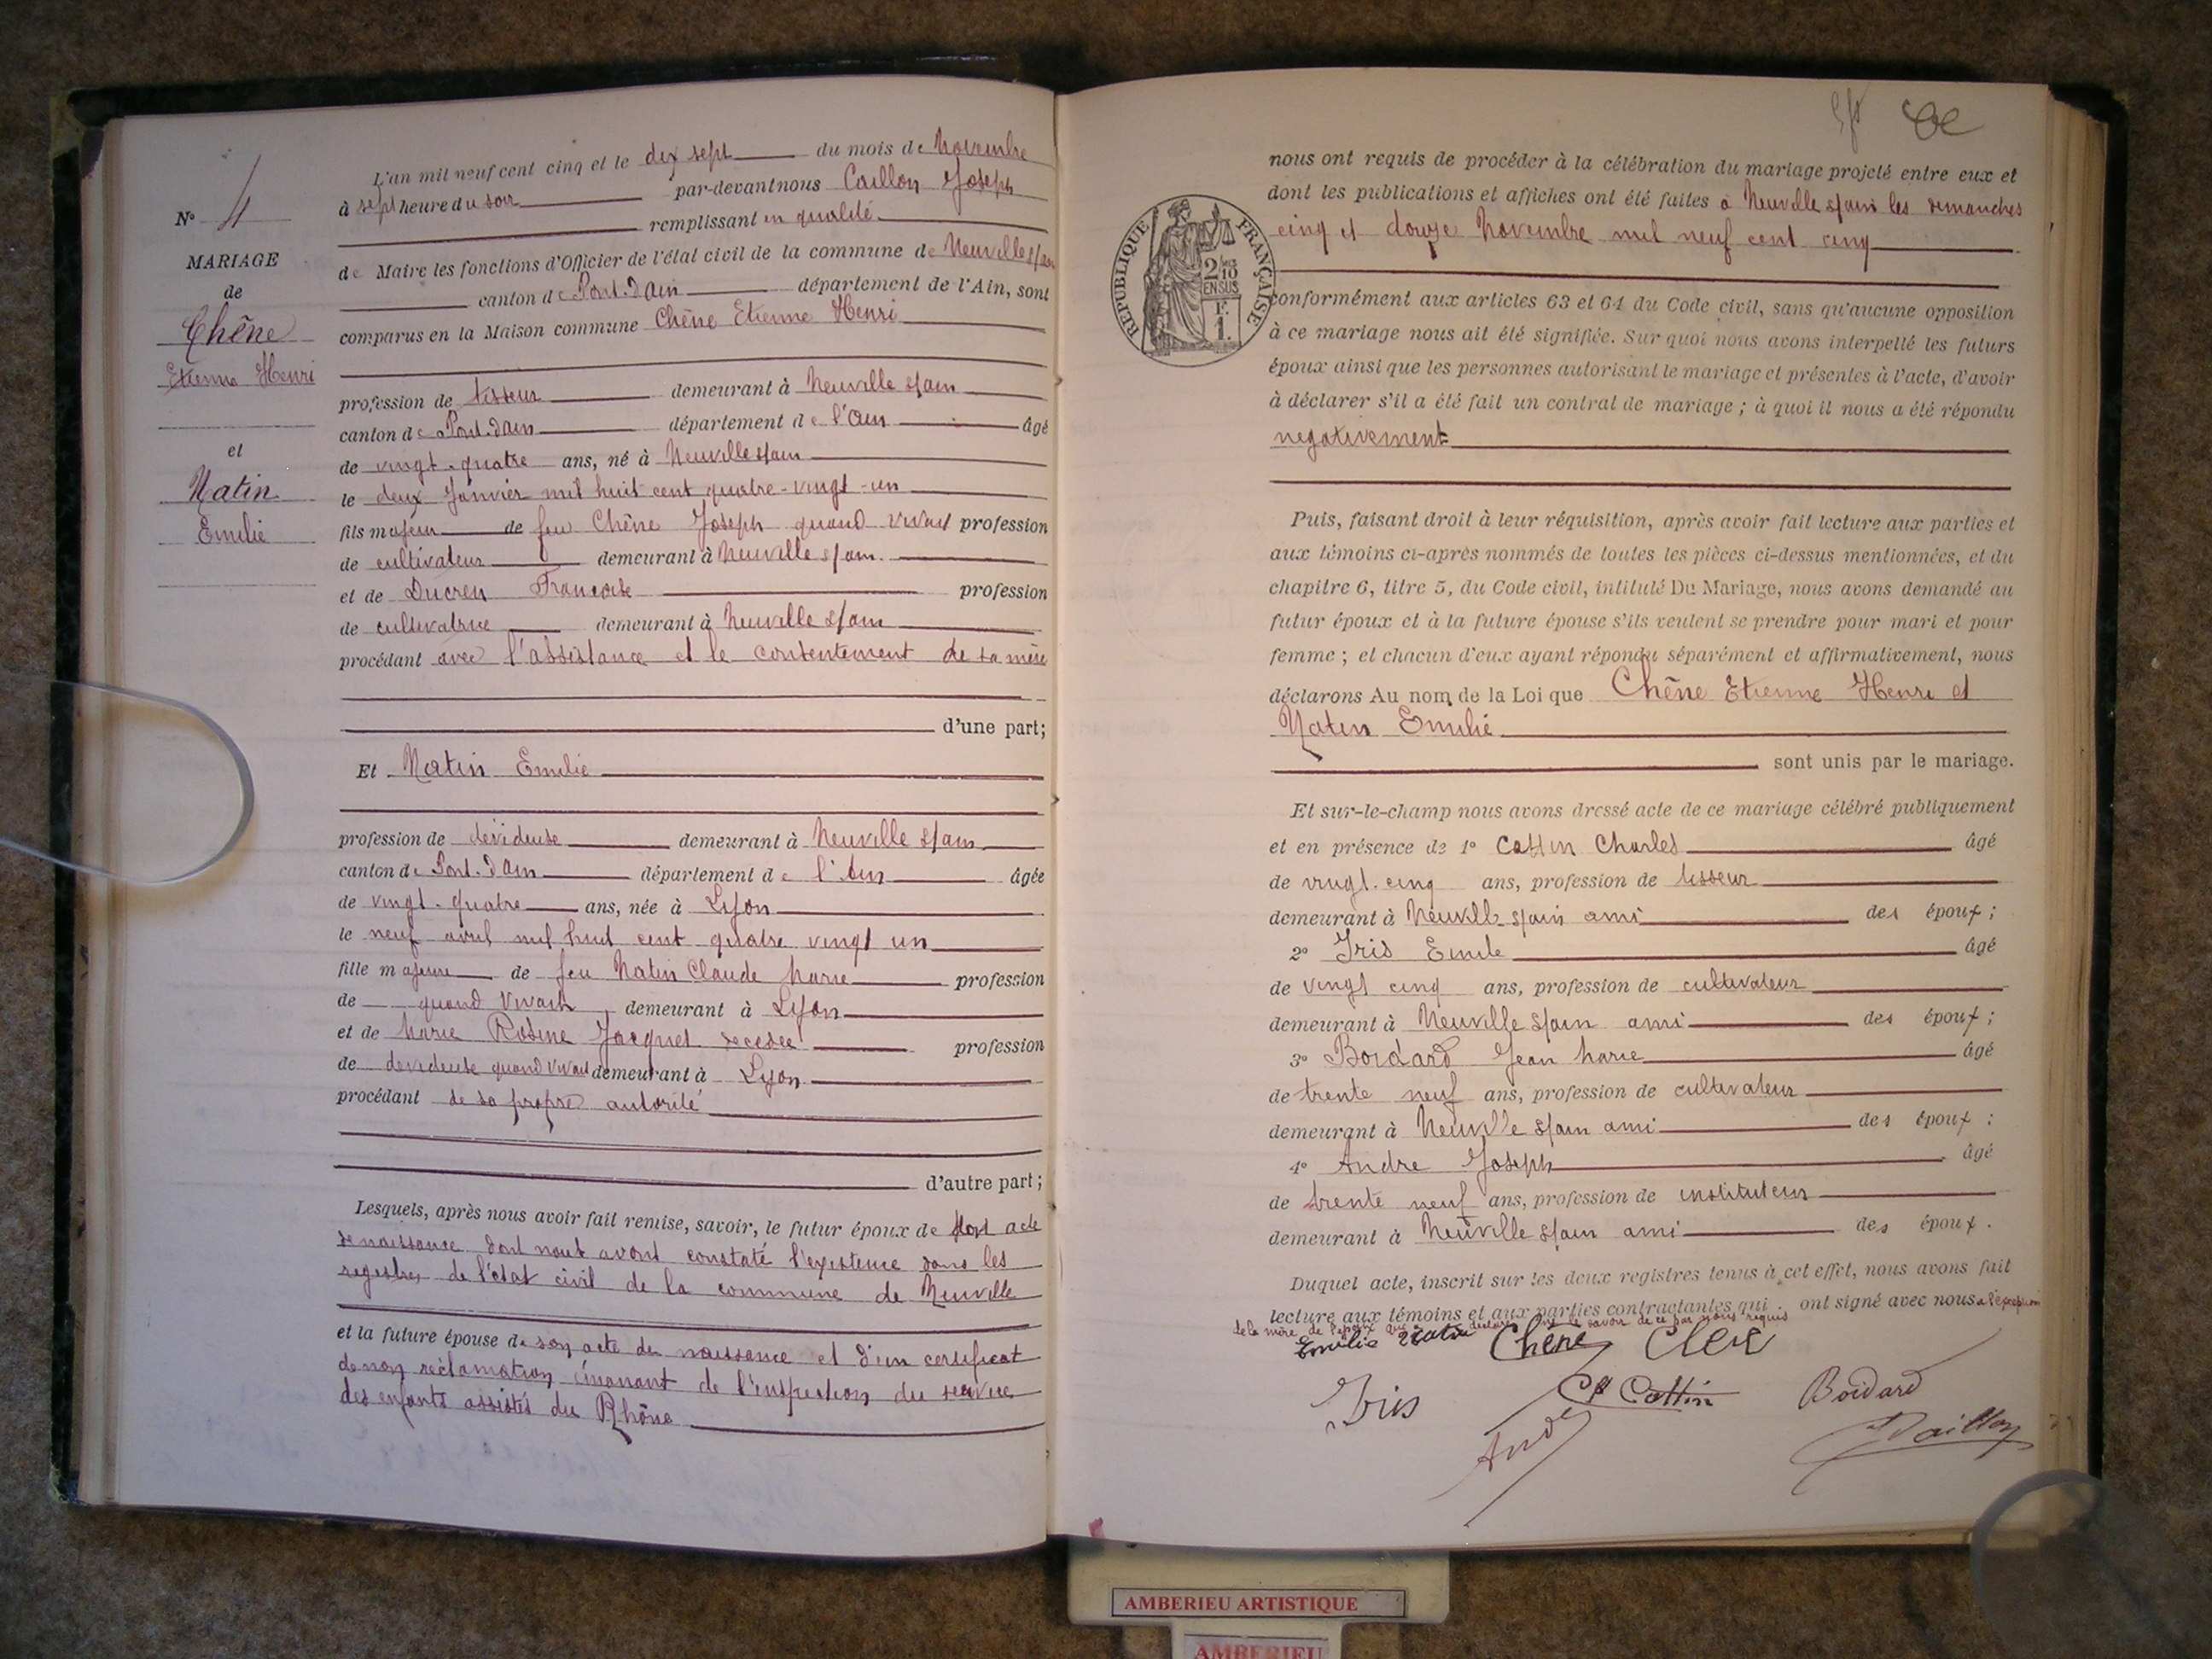 N° 4
MARIAGE
de
Chêne
Etienne Henri
et
Natin
Emilie
L'an mil neuf cent cinq et le dix sept du mois de Novembre
à sept heure du soir par-devant nous Caillon Joseph
remplissant en qualité
de Maire les fonctions d'Officier de l'état civil de la commune de Neuville s/ain
canton de Pont-d'Ain département de l'Ain, sont
comparus en la Maison commune Chêne Etienne Henri
profession de tisseur demeurant à Neuville s/ain
canton de Pont-d'Ain département de l'Ain âgé
de vingt-quatre ans, né à Neuville s/ain
le deux Janvier mil huit cent quatre-vingt-un
fils majeur de feu Chêne Joseph quand vivait profession
de cultivateur demeurant à Neuville s/ain
et de Ducreu Francoise profession
de cultivatrice demeurant à Neuville s/ain
procédant avec l'assistance et le consentement de sa mère
d'une part;
Et Natin Emilie
profession de dévideuse demeurant à Neuville s/ain
canton de Pont-d'Ain département de l'Ain âgée
de vingt-quatre ans, née à Lyon
le neuf avril mil huit cent quatre vingt un
fille majeure de feu Natin Claude Marie profession
de quand vivait demeurant à Lyon
et de Marie Rosine Jacquet decedee profession
de devideuse quand vivait demeurant à Lyon
procédant de sa propre autorité
d'autre part;
Lesquels, après nous avoir fait remise, savoir, le futur époux de son acte
de naissance dont nous avons constaté l'existence dans les
registres de l'état civil de la commune de Neuville
et la future épouse de son acte de naissance et d'un certificat
de non réclamation émanant de l'inspection du service
des enfants assistés du Rhône
nous ont requis de procéder à la célébration du mariage projeté entre eux et
dont les publications et affiches ont été faites à Neuville s/ain les dimanches
cinq et douze Novembre mil neuf cent cinq
RÉPUBLIQUE FRANÇAISE
2/10
EN SUS
F.
1.
conformément aux articles 63 et 64 du Code civil, sans qu'aucune opposition
à ce mariage nous ait été signifiée. Sur quoi nous avons interpellé les futurs
époux ainsi que les personnes autorisant le mariage et présentes à l'acte, d'avoir
à déclarer s'il a été fait un contrat de mariage ; à quoi il nous a été répondu
negativement
Puis, faisant droit à leur réquisition, après avoir fait lecture aux parties et
aux témoins ci-après nommés de toutes les pièces ci-dessus mentionnées, et du
chapitre 6, titre 5, du Code civil, intitulé Du Mariage, nous avons demandé au
futur époux et à la future épouse s'ils veulent se prendre pour mari et pour
femme ; et chacun d'eux ayant répondu séparément et affirmativement, nous
déclarons Au nom de la Loi que Chêne Etienne Henri et
Natin Emilie
sont unis par le mariage.
Et sur-le-champ nous avons dressé acte de ce mariage célébré publiquement
et en présence de 1° Cattin Charles âgé
de vingt-cinq ans, profession de tisseur
demeurant à Neuville s/ain ami des époux ;
2° Iris Emile âgé
de vingt cinq ans, profession de cultivateur
demeurant à Neuville s/ain ami des époux ;
3° Boidard Jean Marie âgé
de trente neuf ans, profession de cultivateur
demeurant à Neuville s/ain ami des époux ;
4° Andre Joseph âgé
de trente neuf ans, profession de instituteur
demeurant à Neuville s/ain ami des époux.
Duquel acte, inscrit sur les deux registres tenus à cet effet, nous avons fait
lecture aux témoins et aux parties contractantes qui ont signé avec nous à l'exception
de la mère de l'époux qui a déclaré ne le savoir de ce par nous requis
Emilie Natin Chêne Clerc
Iris Ch Cattin Boidard
André Caillon
AMBERIEU ARTISTIQUE
AMBERIEU